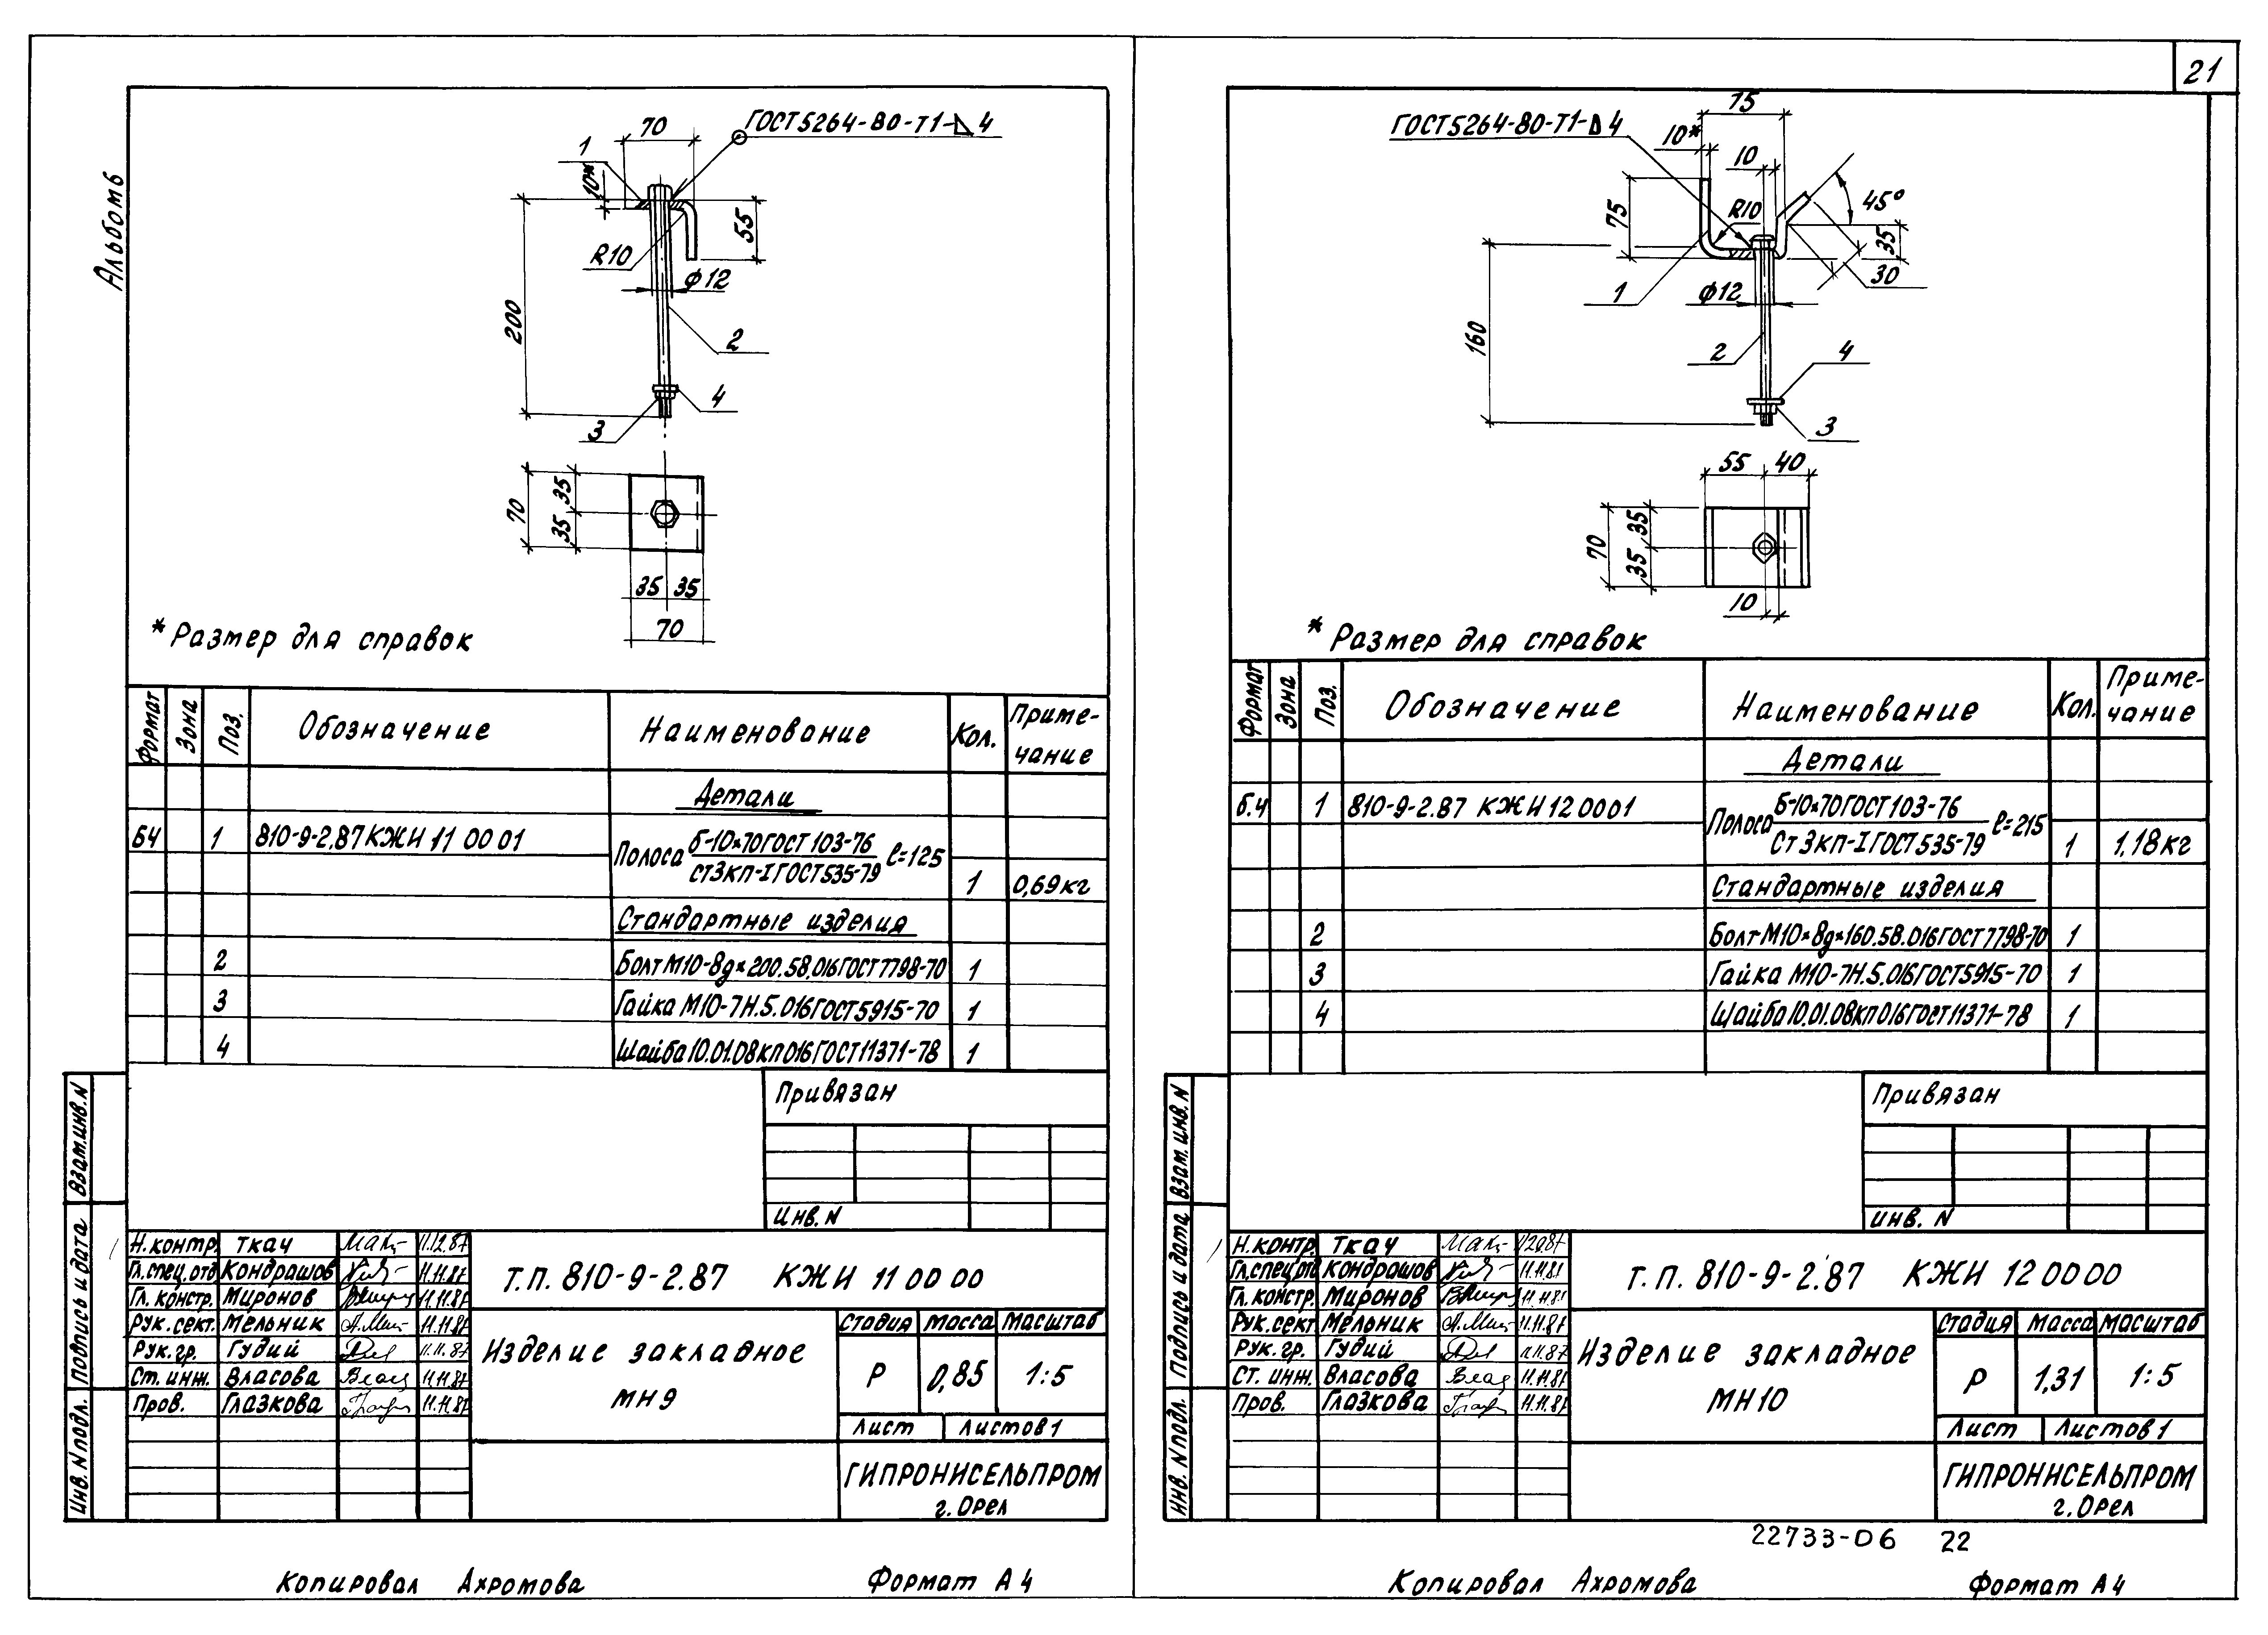 21
Альбом 6
ГОСТ 5264-80-Т1-⊿ 4
70
1
10*
55
R10
ф12
200
2
4
3
70
35
35
35 35
70
* Размер для справок
Формат Зона Поз. Обозначение Наименование Кол. Приме-
чание
Детали
БЧ 1 810-9-2.87 КЖИ 11 00 01 Полоса б-10×70 ГОСТ 103-76 ℓ=125
Ст3кп-I ГОСТ 535-79 1 0,69кг
Стандартные изделия
2 Болт М10-8g×200.58.016 ГОСТ 7798-70 1
3 Гайка М10-7Н.5.016 ГОСТ 5915-70 1
4 Шайба 10.01.08кп 016 ГОСТ 11371-78 1
Привязан
Инв. N
Взам.инв. N
Подпись и дата
Инв. N подл.
Н.контр. Ткач 11.12.87
Гл.спец.отд Кондрашов 11.11.87
Гл. констр. Миронов 11.11.87
Рук.сект. Мельник 11.11.87
Рук.гр. Гудий 11.11.87
Ст.инж. Власова 11.11.87
Пров. Глазкова 11.11.87
Т.П. 810-9-2.87 КЖИ 11 00 00
Изделие закладное
МН9
Стадия Масса Масштаб
Р 0,85 1:5
Лист Листов 1
ГИПРОНИСЕЛЬПРОМ
г.Орел
Копировал Ахромова Формат А4
ГОСТ 5264-80-Т1-⊿ 4
75
10*
10
75
R10
45°
35
30
1
ф12
160
2
4
3
55 40
70
35
35
10
* Размер для справок
Формат Зона Поз. Обозначение Наименование Кол. Приме-
чание
Детали
б.ч 1 810-9-2.87 КЖИ 12 00 01 Полоса б-10×70 ГОСТ 103-76 ℓ=215
Ст3кп-I ГОСТ 535-79 1 1,18кг
Стандартные изделия
2 Болт М10×8g×160.58.016 ГОСТ 7798-70 1
3 Гайка М10-7Н.5.016 ГОСТ 5915-70 1
4 Шайба 10.01.08кп 016 ГОСТ 11371-78 1
Привязан
Инв. N
Взам. инв. N
Подпись и дата
Инв. N подл.
Н.контр. Ткач
Гл.спец.отд Кондрашов
Гл.констр. Миронов
Рук.сект Мельник 11.11.87
Рук.гр. Гудий 11.11.87
Ст. инж. Власова 11.11.87
Пров. Глазкова 11.11.87
Т.П. 810-9-2.87 КЖИ 12 00 00
Изделие закладное
МН10
Стадия Масса Масштаб
Р 1,31 1:5
Лист Листов 1
ГИПРОНИСЕЛЬПРОМ
г.Орел
22733-06 22
Копировал Ахромова Формат А4